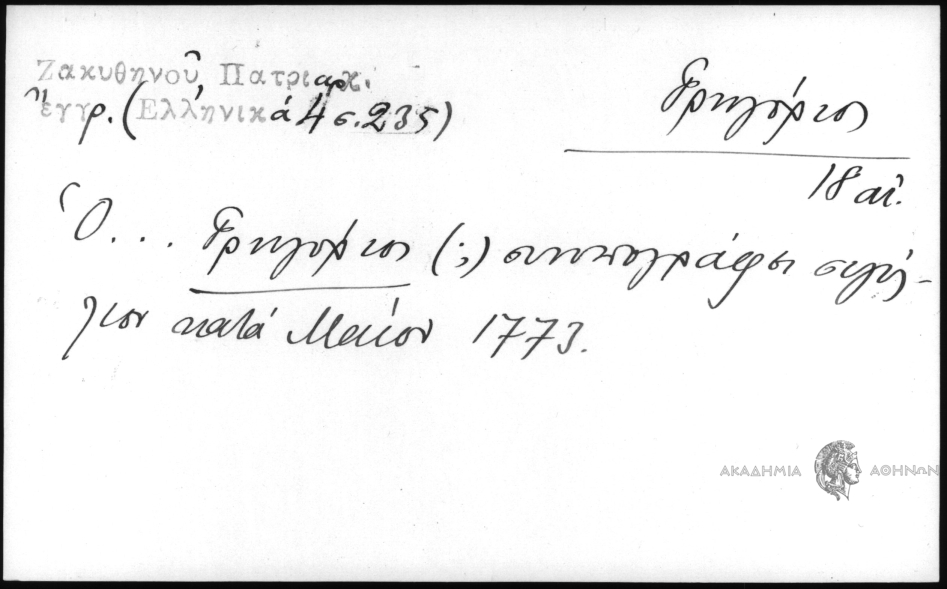 Ζακυθηνοῦ, Πατριαρχ.
ἔγγρ. (Ἑλληνικά 4 σ. 235)
Γρηγόριος
18 αἰ.
Ὁ ... Γρηγόριος (;) συνυπογράφει σιγίλ-
λιον κατά Μαΐον 1773.
ΑΚΑΔΗΜΙΑ ΑΘΗΝΩΝ